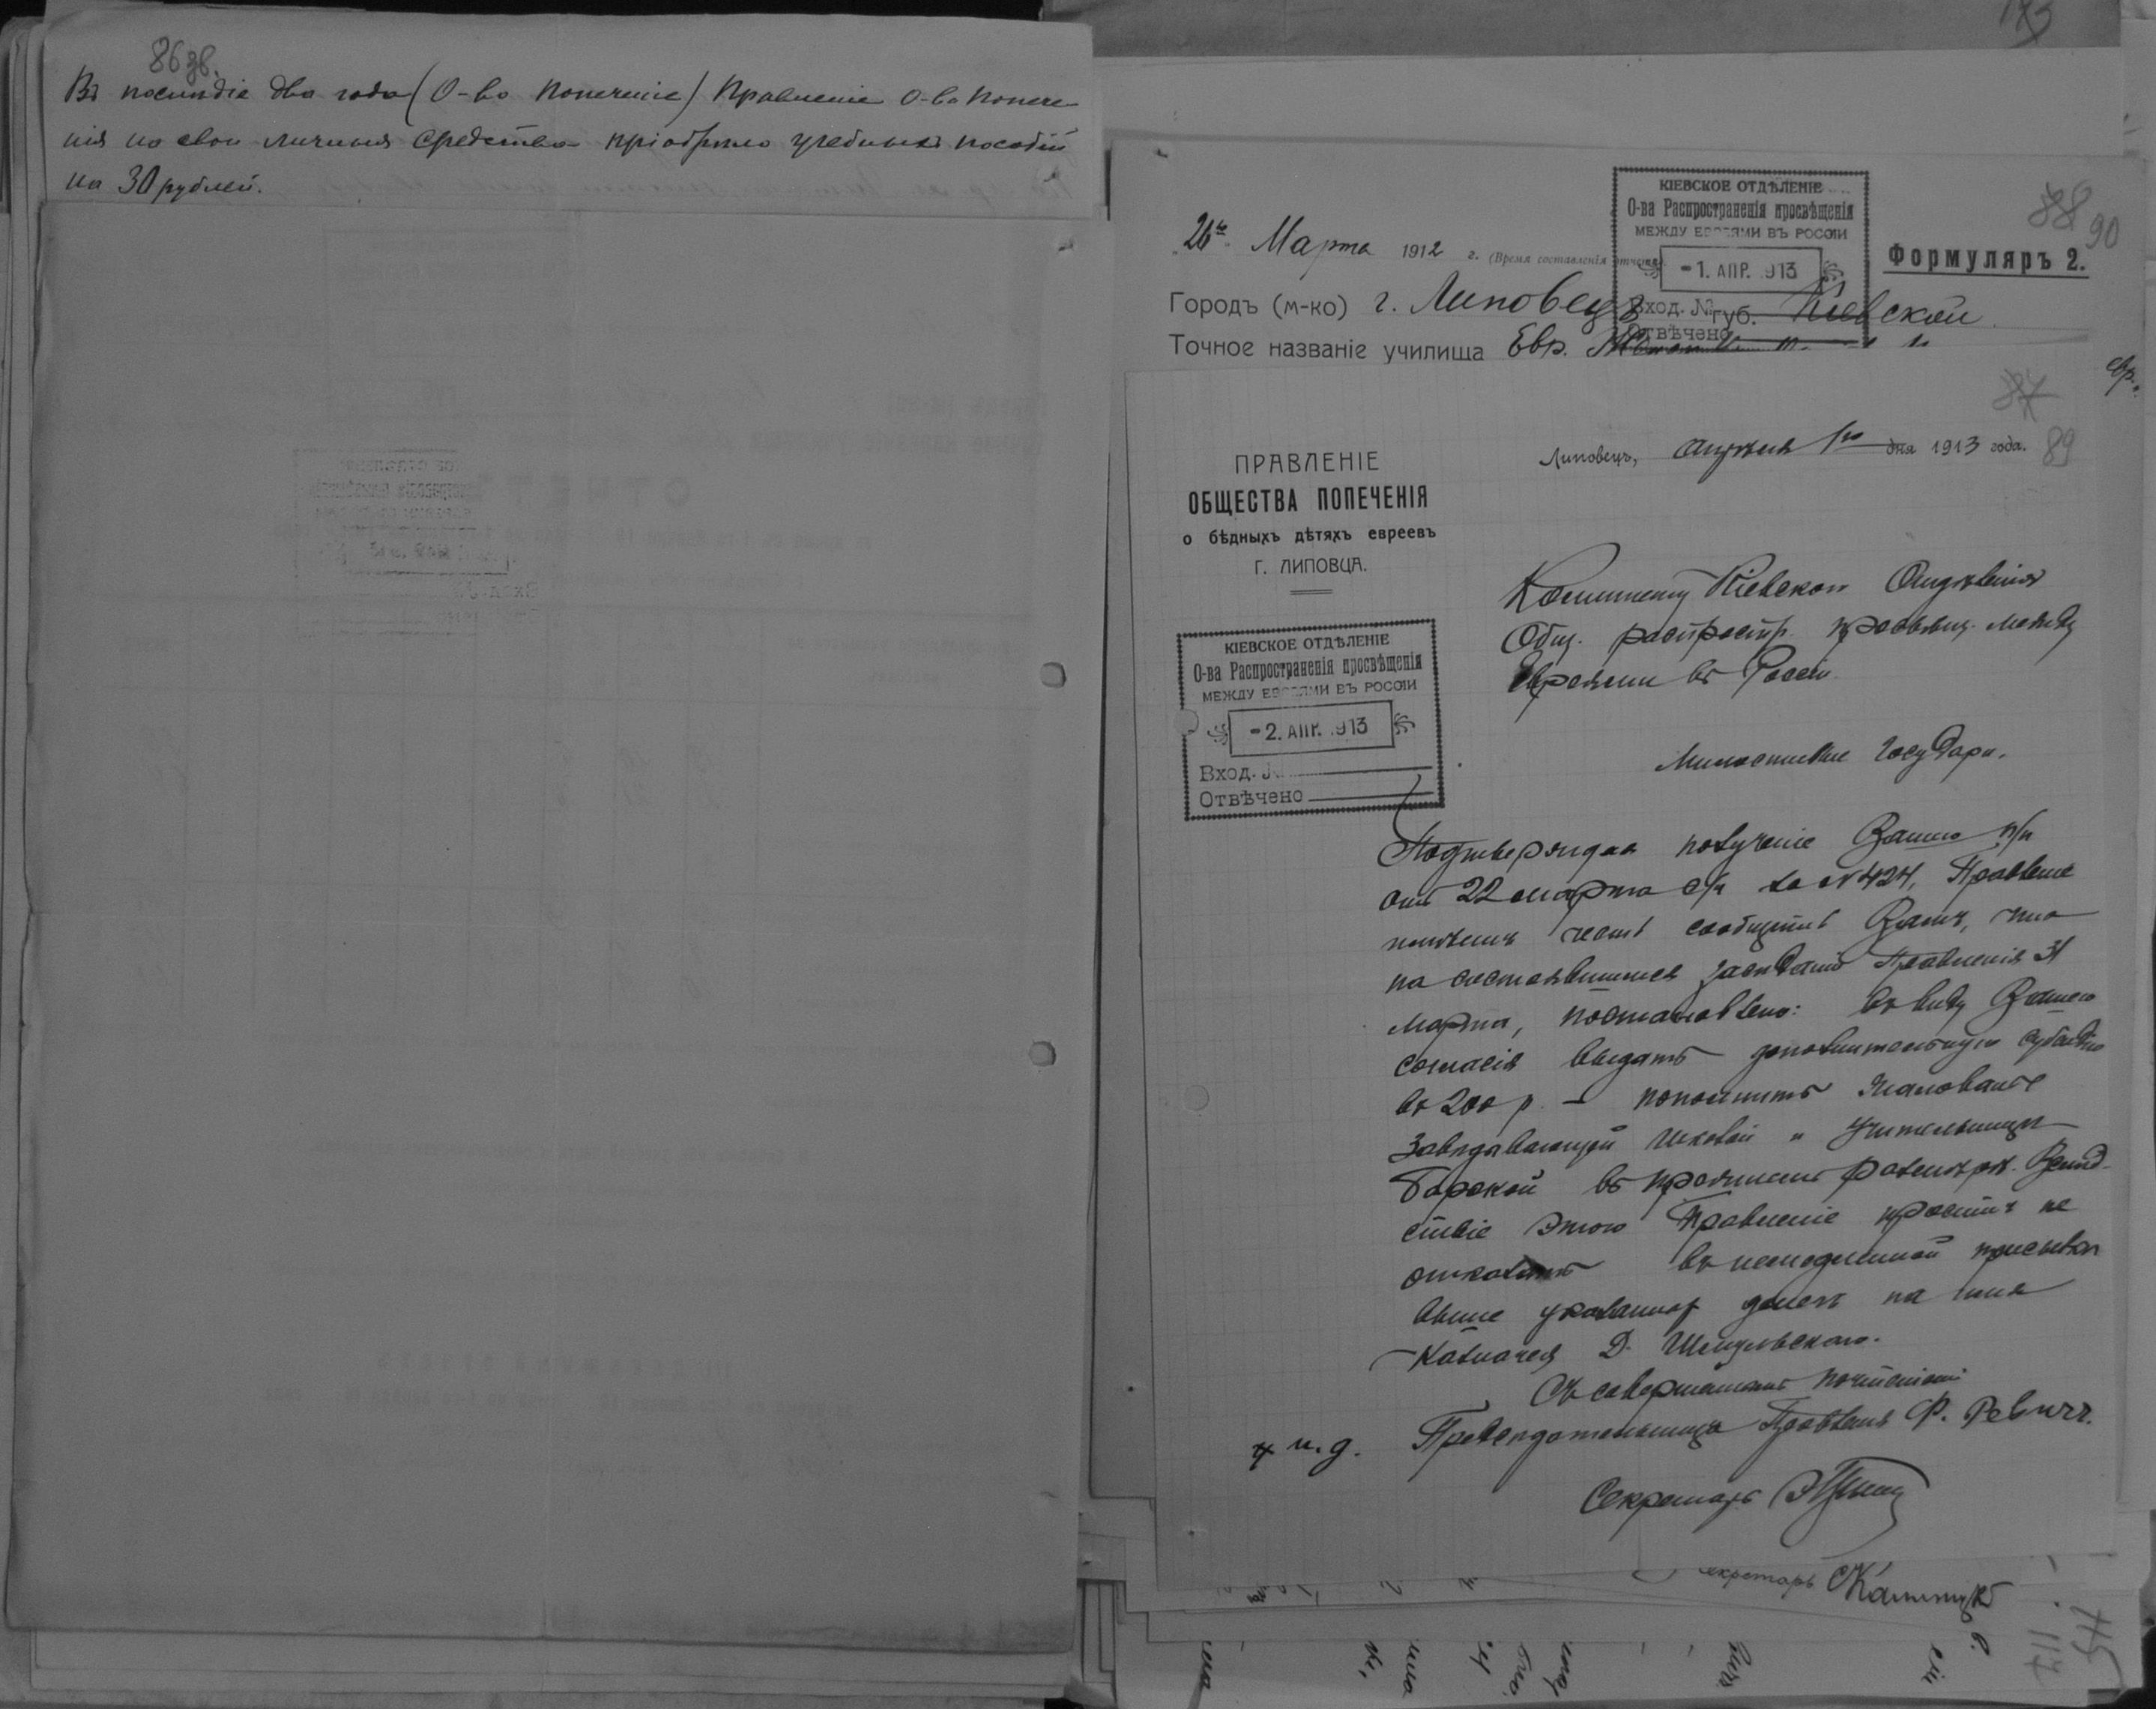 86 зв.
Въ послѣдіе два года (О-во Попеченіе) Правленіе О-ва Попече
нія на свои личныя средства пріобрѣло учебныхъ пособій
на 30 рублей.
173
КІЕВСКОЕ ОТДѢЛЕНІЕ
О-ва Распространенія просвѣщенія
МЕЖДУ ЕВРЕЯМИ ВЪ РОССІИ
-1. АПР. 913
Вход. №
Отвѣчено
88 90
26го Марта 1912 г. (Время составленія отчета)
Формуляръ 2.
Городъ (м-ко) г. Липовецъ губ. Кіевской
Точное названіе училища Евр.
евр.
87
89
ПРАВЛЕНІЕ
ОБЩЕСТВА ПОПЕЧЕНІЯ
о бѣдныхъ дѣтяхъ евреевъ
Г. ЛИПОВЦА.
Липовецъ, Апрѣля 1го дня 1913 года.
КІЕВСКОЕ ОТДѢЛЕНІЕ
О-ва Распространенія просвѣщенія
МЕЖДУ ЕВРЕЯМИ ВЪ РОССІИ
-2. АПР. 913
Вход. №
Отвѣчено
Комитету Кіевскаго Отдѣленія
Общ. распростр. просвѣщ. между
Евреями въ Россіи
Милостивые Государи.
Подтверждая полученіе Вашего п/п
отъ 22 марта с/г за № 424, Правленіе
имѣетъ честь сообщить Вамъ, что
на состоявшемся засѣданіи Правленія 31
марта, постановлено: въ виду Вашего
согласія выдать дополнительную субсидію
въ 200 р. – пополнить жалованье
Завѣдывающей школой и учительницы
Барской въ прежнемъ размѣрѣ. Вслѣд-
ствіе этого Правленіе проситъ не
отказать въ немедленной присылкѣ
выше указанныхъ денегъ на имя
Казначея Д.
Съ совершеннымъ почтеніемъ
и. д. Предсѣдательница Правленія Ф. Ревичъ.
Секретарь
Секретарь
117